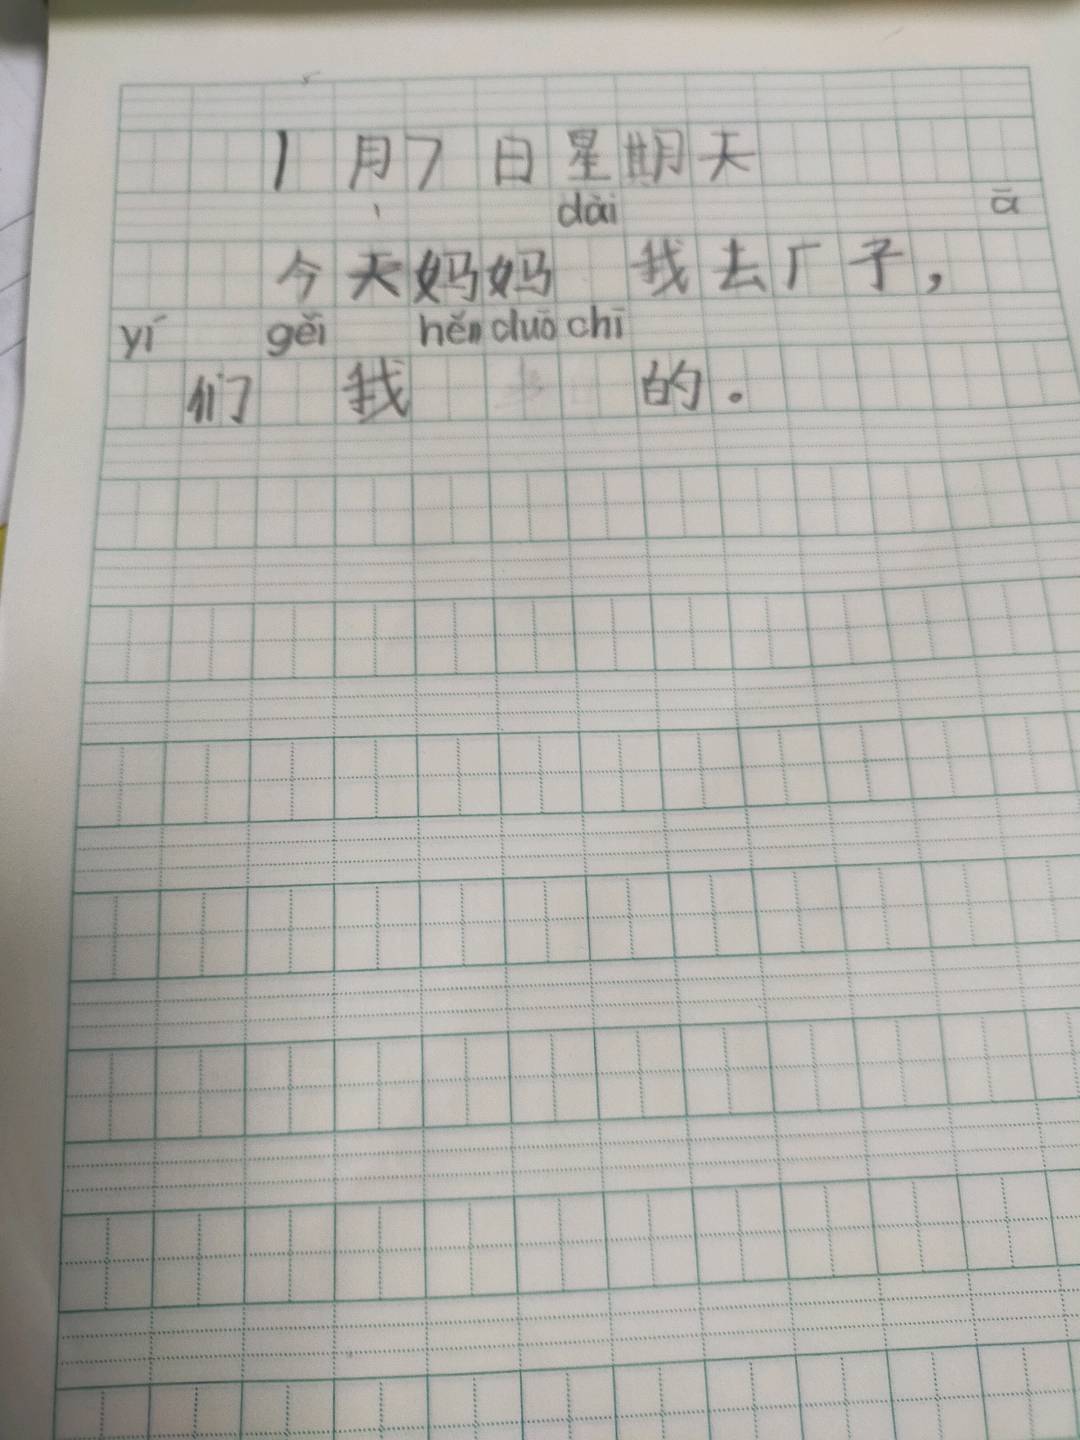 1月7日星期天
dài ā
今天妈妈 我去厂子，
yí gěi hěn duō chī
们 我 的。